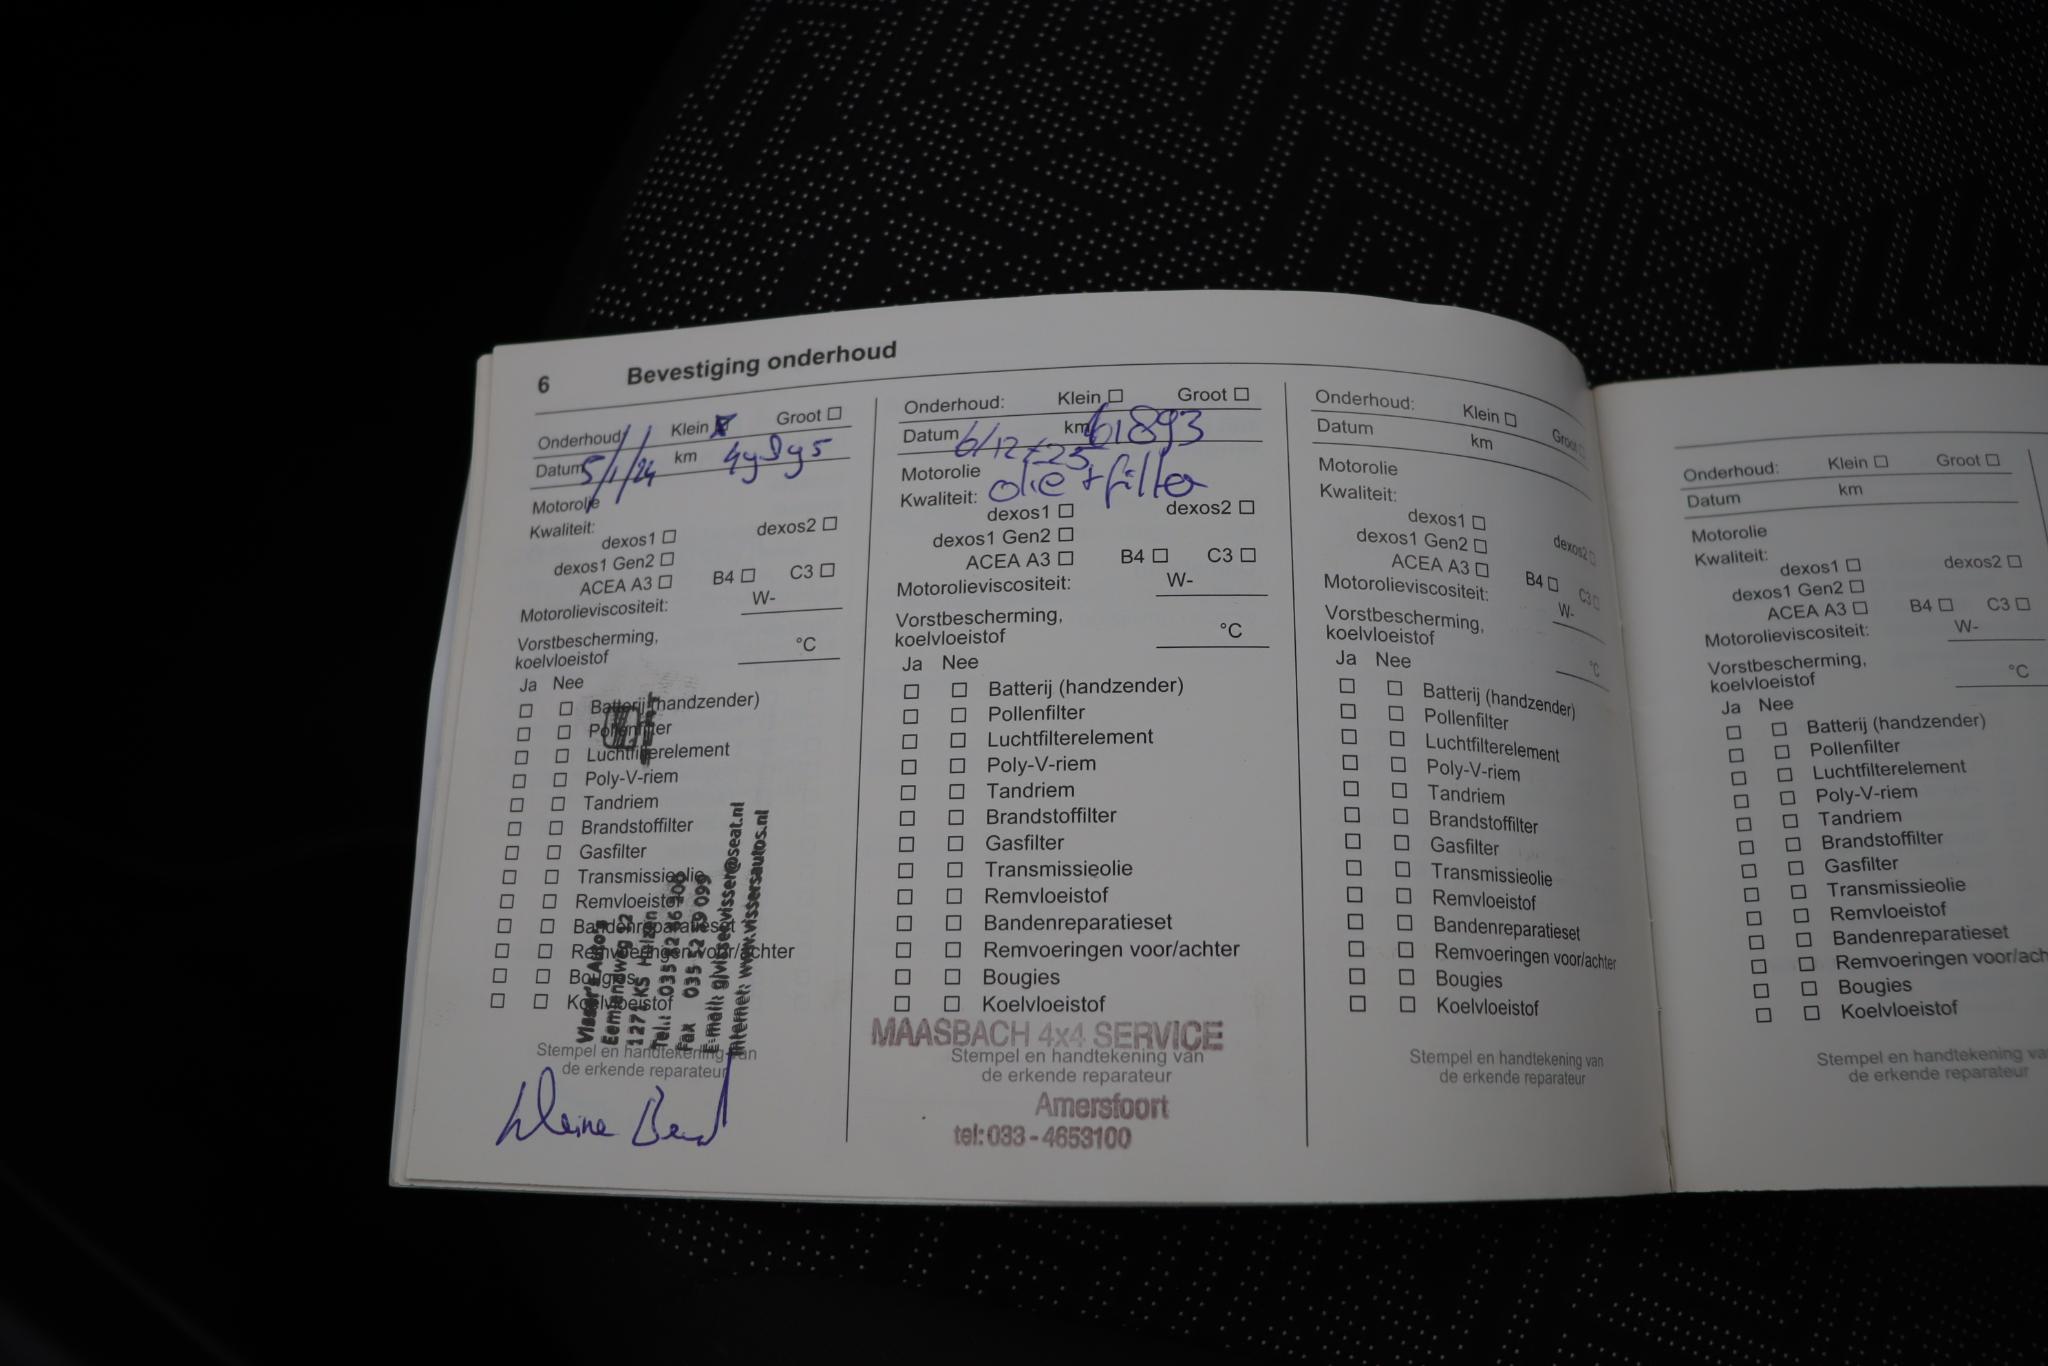 6 Bevestiging onderhoud
Onderhoud: Klein Groot
Datum 5/1/24 km
Motorolie
Kwaliteit:
dexos1 dexos2
dexos1 Gen2
ACEA A3 B4 C3
Motorolieviscositeit: W-
Vorstbescherming,
koelvloeistof °C
Ja Nee
Batterij (handzender)
Pollenfilter
Luchtfilterelement
Poly-V-riem
Tandriem
Brandstoffilter
Gasfilter
Transmissieolie
Remvloeistof
Bandenreparatieset
Remvoeringen voor/achter
Bougies
Koelvloeistof
Visser's Auto's
Eemlandweg
1271 KS Huizen
Tel.: 035
Fax 035
E-mail: gjvisser.visser@seat.nl
Internet: www.vissersautos.nl
Stempel en handtekening van
de erkende reparateur
kleine Beurt
Onderhoud: Klein Groot
Datum 6/12/-25 km 61893
Motorolie
Kwaliteit: olie + filter
dexos1 dexos2
dexos1 Gen2
ACEA A3 B4 C3
Motorolieviscositeit: W-
Vorstbescherming,
koelvloeistof °C
Ja Nee
Batterij (handzender)
Pollenfilter
Luchtfilterelement
Poly-V-riem
Tandriem
Brandstoffilter
Gasfilter
Transmissieolie
Remvloeistof
Bandenreparatieset
Remvoeringen voor/achter
Bougies
Koelvloeistof
MAASBACH 4x4 SERVICE
Stempel en handtekening van
de erkende reparateur
Amersfoort
tel: 033 - 4653100
Onderhoud: Klein Groot
Datum km
Motorolie
Kwaliteit:
dexos1 dexos2
dexos1 Gen2
ACEA A3 B4 C3
Motorolieviscositeit: W-
Vorstbescherming,
koelvloeistof °C
Ja Nee
Batterij (handzender)
Pollenfilter
Luchtfilterelement
Poly-V-riem
Tandriem
Brandstoffilter
Gasfilter
Transmissieolie
Remvloeistof
Bandenreparatieset
Remvoeringen voor/achter
Bougies
Koelvloeistof
Stempel en handtekening van
de erkende reparateur
Onderhoud: Klein Groot
Datum km
Motorolie
Kwaliteit:
dexos1 dexos2
dexos1 Gen2
ACEA A3 B4 C3
Motorolieviscositeit: W-
Vorstbescherming,
koelvloeistof °C
Ja Nee
Batterij (handzender)
Pollenfilter
Luchtfilterelement
Poly-V-riem
Tandriem
Brandstoffilter
Gasfilter
Transmissieolie
Remvloeistof
Bandenreparatieset
Remvoeringen voor/ach
Bougies
Koelvloeistof
Stempel en handtekening va
de erkende reparateur